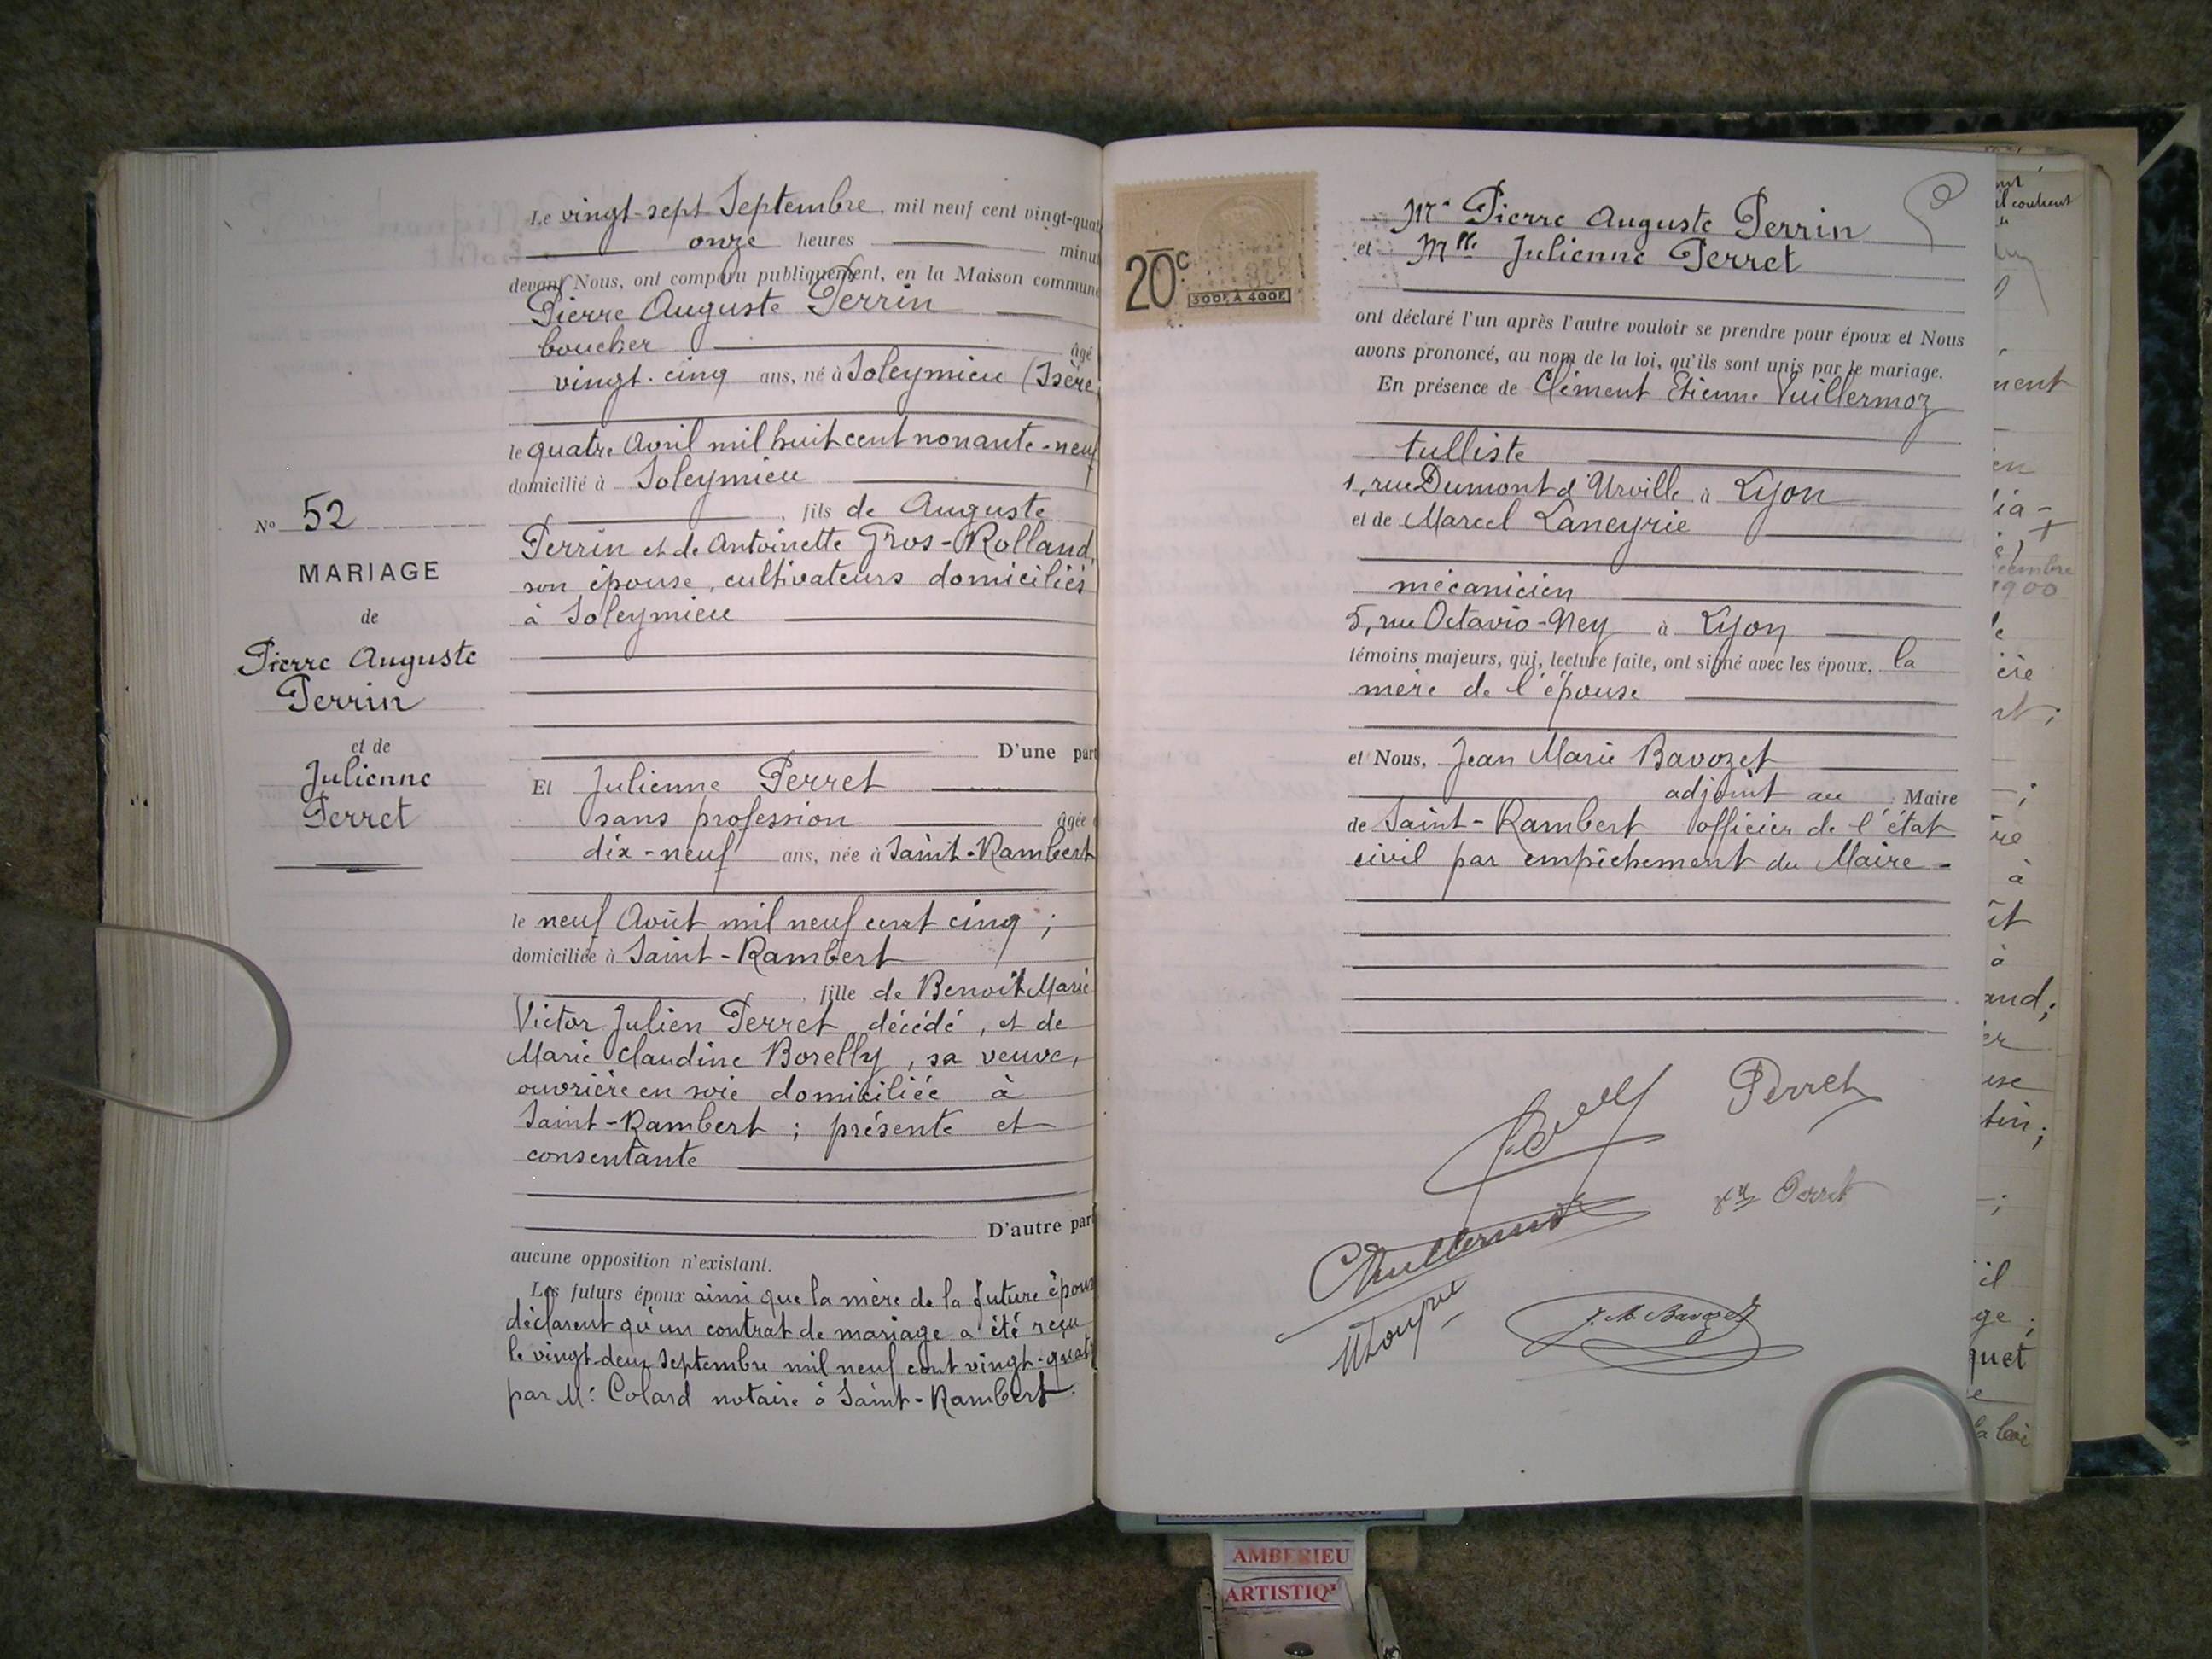 N° 52
MARIAGE
de
Pierre Auguste
Perrin
et de
Julienne
Perret
Le vingt-sept Septembre, mil neuf cent vingt-quat
onze heures minu
devant Nous, ont comparu publiquement, en la Maison commune
Pierre Auguste Perrin
boucher âgé
vingt-cinq ans, né à Soleymieu (Isère
le quatre Avril mil huit cent nonante-neuf
domicilié à Soleymieu
, fils de Auguste
Perrin et de Antoinette Gros-Rolland,
son épouse, cultivateurs domiciliés
à Soleymieu
D'une part
Et Julienne Perret
sans profession âgée
dix-neuf ans, née à Saint-Rambert
le neuf Août mil neuf cent cinq ;
domiciliée à Saint-Rambert
, fille de Benoit Marie
Victor Julien Perret décédé, et de
Marie Claudine Borelly, sa veuve,
ouvrière en soie domiciliée à
Saint-Rambert ; présente et
consentante
D'autre part
aucune opposition n'existant.
Les futurs époux ainsi que la mère de la future épous
déclarent qu'un contrat de mariage a été reçu
le vingt-deux Septembre mil neuf cent vingt-quatr
par Me Colard notaire à Saint-Rambert.
20c
300F. À 400F.
Mr Pierre Auguste Perrin
et Mlle Julienne Perret
ont déclaré l'un après l'autre vouloir se prendre pour époux et Nous
avons prononcé, au nom de la loi, qu'ils sont unis par le mariage.
En présence de Clément Etienne Vuillermoz
tulliste
1, rue Dumont d'Urville à Lyon
et de Marcel Laneyrie
mécanicien
5, rue Octavio-Mey à Lyon
témoins majeurs, qui, lecture faite, ont signé avec les époux, la
mère de l'épouse
et Nous, Jean Marie Bavozet
adjoint au Maire
de Saint-Rambert officier de l'état
civil par empêchement du Maire -
Perret
Perret
CVuillermoz
J. M. Bavozet
AMBERIEU ARTISTIQUE
AMBERIEU
ARTISTIQ